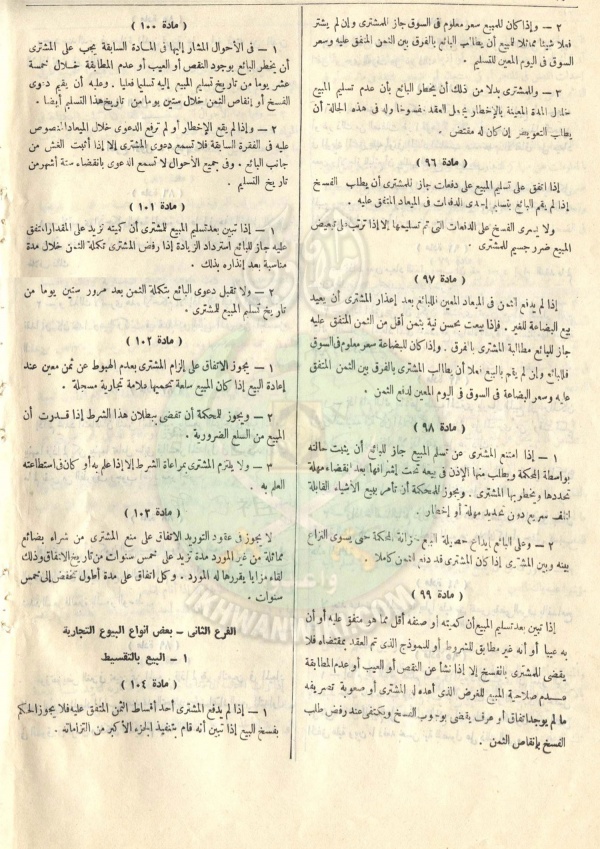 ٢ — وإذا كان للمبيع سعر معلوم فى السوق جاز للمشترى وإن لم يشتر
فعلا شيئا مماثلا للمبيع أن يطالب البائع بالفرق بين الثمن المتفق عليه وسعر
السوق فى اليوم المعين للتسليم .
٣ — وللمشترى بدلا من ذلك أن يخطر البائع بأن عدم تسليم المبيع
خلال المدة المعينة بالإخطار يجعل العقد مفسوخا وله فى هذه الحالة أن
يطالب التعويض إن كان له مقتض .
( مادة ٩٦ )
إذا اتفق على تسليم المبيع على دفعات جاز للمشترى أن يطلب الفسخ
إذا لم يقم البائع بتسليم إحدى الدفعات فى الميعاد المتفق عليه .
ولا يسرى الفسخ على الدفعات التى تم تسليمها إلا إذا ترتب على تبعيض
المبيع ضرر جسيم للمشترى .
( مادة ٩٧ )
إذا لم يدفع الثمن فى الميعاد المعين فللبائع بعد إعذار المشترى أن يعيد
بيع البضاعة للغير . فإذا بيعت بحسن نية بثمن أقل من الثمن المتفق عليه
جاز للبائع مطالبة المشترى بالفرق . وإذا كان للبضاعة سعر معلوم فى السوق
فللبائع وإن لم يقم بالبيع فعلا أن يطالب المشترى بالفرق بين الثمن المتفق
عليه وسعر البضاعة فى السوق فى اليوم المعين لدفع الثمن .
( مادة ٩٨ )
١ — إذا امتنع المشترى عن تسلم المبيع جاز للبائع أن يثبت حالته
بواسطة المحكمة ويطلب منها الإذن فى بيعه تحت إشرافها بعد انقضاء مهلة
تحددها ويخطر بها المشترى . ويجوز للمحكمة أن تأمر ببيع الأشياء القابلة
لتلف سريع دون تحديد مهلة أو إخطار .
٢ — وعلى البائع إيداع حصيلة البيع خزانة المحكمة حتى يسوى النزاع
بينه وبين المشترى إذا كان المشترى قد دفع الثمن كاملا .
( مادة ٩٩ )
إذا تبين بعد تسليم المبيع أن كميته أو صنفه أقل مما هو متفق عليه أو أن
به عيبا أو أنه غير مطابق للشروط أو للنموذج الذى تم العقد بمقتضاه فلا
يقضى للمشترى بالفسخ إلا إذا نشأ عن النقص أو العيب أو عدم المطابقة
عدم صلاحية المبيع للغرض الذى أعده له المشترى أو صعوبة تصريفه
ما لم يوجد اتفاق أو عرف يقضى بوجوب الفسخ ويكتفى عند رفض طلب
الفسخ بإنقاص الثمن .
( مادة ١٠٠ )
١ — فى الأحوال المشار إليها فى المادة السابقة يجب على المشترى
أن يخطر البائع بوجود النقص أو العيب أو عدم المطابقة خلال خمسة
عشر يوما من تاريخ تسليم المبيع إليه تسليما فعليا . وعليه أن يقيم دعوى
الفسخ أو إنقاص الثمن خلال ستين يوما من تاريخ هذا التسليم أيضا .
٢ — وإذا لم يقع الإخطار أو لم ترفع الدعوى خلال الميعاد المنصوص
عليه فى الفقرة السابقة فلا تسمع دعوى المشترى إلا إذا أثبت الغش من
جانب البائع . وفى جميع الأحوال لا تسمع الدعوى بانقضاء ستة أشهر من
تاريخ التسليم .
( مادة ١٠١ )
١ — إذا تبين بعد تسليم المبيع للمشترى أن كميته تزيد على المقدار المتفق
عليه جاز للبائع استرداد الزيادة إذا رفض المشترى تكملة الثمن خلال مدة
مناسبة بعد إنذاره بذلك .
٢ — ولا تقبل دعوى البائع بتكملة الثمن بعد مرور ستين يوما من
تاريخ تسليم المبيع للمشترى .
( مادة ١٠٢ )
١ — يجوز الاتفاق على إلزام المشترى بعدم الهبوط عن ثمن معين عند
إعادة البيع إذا كان المبيع سلعة تحميها علامة تجارية مسجلة .
٢ — ويجوز للمحكمة أن تقضى ببطلان هذا الشرط إذا قدرت أن
المبيع من السلع الضرورية .
٣ — ولا يلتزم المشترى بمراعاة الشرط إلا إذا علم به أو كان فى استطاعته
العلم به .
( مادة ١٠٣ )
لا يجوز فى عقود التوريد الاتفاق على منع المشترى من شراء بضائع
مماثلة من غير المورد مدة تزيد على خمس سنوات من تاريخ الاتفاق وذلك
لقاء مزايا يقررها له المورد . وكل اتفاق على مدة أطول تخفض إلى خمس
سنوات .
الفرع الثانى – بعض انواع البيوع التجارية
١ – البيع بالتقسيط
( مادة ١٠٤ )
١ — إذا لم يدفع المشترى أحد أقساط الثمن المتفق عليه فلا يجوز الحكم
بفسخ البيع إذا تبين أنه قام بتنفيذ الجزء الأكبر من التزاماته .